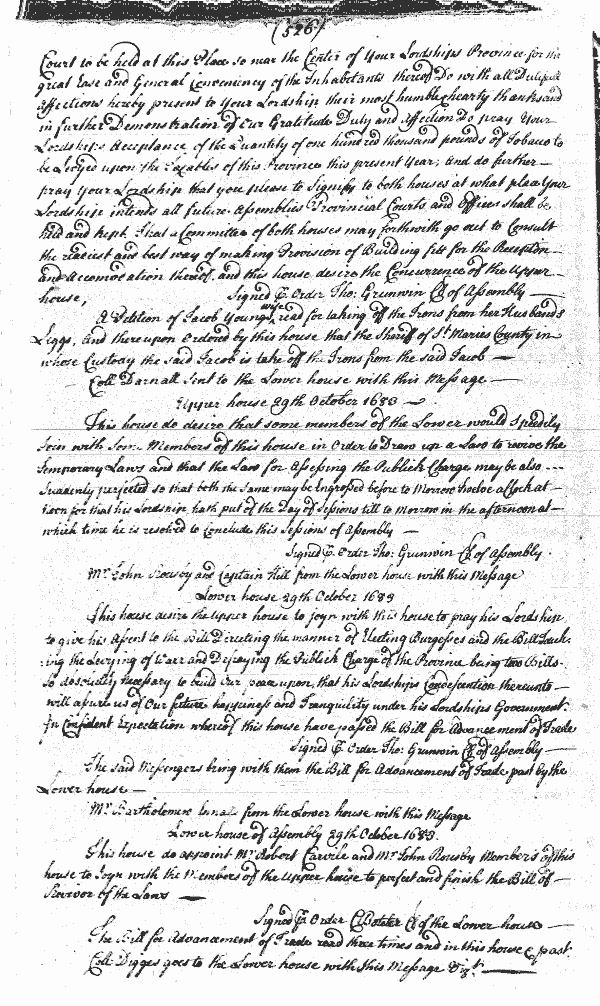 (526)
Court to be held at this Place so near the Center of Your Lordships Province for the
great Ease and General Conveniency of the Inhabitants thereof Do with all Dutifull
affections hereby present to your Lordship their most humble & hearty thanks and
in further Demonstration of Our Gratitude Duty and affection Do pray Your
Lordships Acceptance of the Quantity of one hundred thousand pounds of Tobacco to
be Levyed upon the Taxables of this Province this present Year, and do further
pray Your Lordship that you please to Signify to both houses at what place Your
Lordship intents all future Assemblies Provincial Courts and Offices shall be
held and kept. that a Committee of both houses may forthwith go out to Consult
the readiest and best way of making Provision of Building fitt for the Reception
and Accomodation thereof, and this house desire the Concurrence of the Upper
house, Signed P. Order Tho: Grunwin Cl of Assembly
A Petition of Jacob Youngs wife read for taking off the Irons from her Husbands
Leggs, and thereupon Ordered by this house that the Sheriff of St. Maries County in
whose Custody the said Jacob is take off the Irons from the said Jacob
Coll Darnall Sent to the Lower house with this Message
Upper house 29th October 1683
This house do desire that some members of the Lower would Speedily
Join with Some Members of this house in Order to Draw up a Law to revive the
Temporary Laws and that the Law for Assessing the Publick Charge may be also
Suddenly perfected so that both the Same may be Engrossed before to Morrow twelve a Clock at
noon for that his Lordship hath put off the Day of Sessions till to Morrow in the afternoon at
which time he is resolved to Conclude this Sessions of Assembly
Signed P. Order Tho: Grunwin Cl of Assembly.
Mr. John Rousby and Captain Hill from the Lower house with this Message
Lower house 29th October 1683
This house desire the Upper house to joyn with this house to pray his Lordship
to give his Assent to the Bill Directing the manner of Electing Burgesses and the Bill Touch
ing the Levying of Warr and Defraying the Publick Charge of the Province being two Bills
so absolutely necessary to build Our peace upon, that his Lordships Condescention thereunto
will assure us of Our future happiness and Tranquility under his Lordships Government.
In Confident Expectation whereof this house have passed the Bill for Advancement of Trade
Signed P. Order Tho: Grunwin Cl of Assembly
The said Messengers bring with them the Bill for Advancement of Trade past by the
Lower house
Mr. Bartholomew from the Lower house with this Message
Lower house of Assembly 29th October 1683.
This house do appoint Mr. Robert Carvile and Mr. John Rousby Members of this
house to Joyn with the Members of the Upper house to perfect and finish the Bill of
Revivor of the Laws
Signed P. Order Cl of the Lower house
The Bill for Advancement of Trade read three times and in this house past.
Coll Digges goes to the Lower house with this Message Vizt.